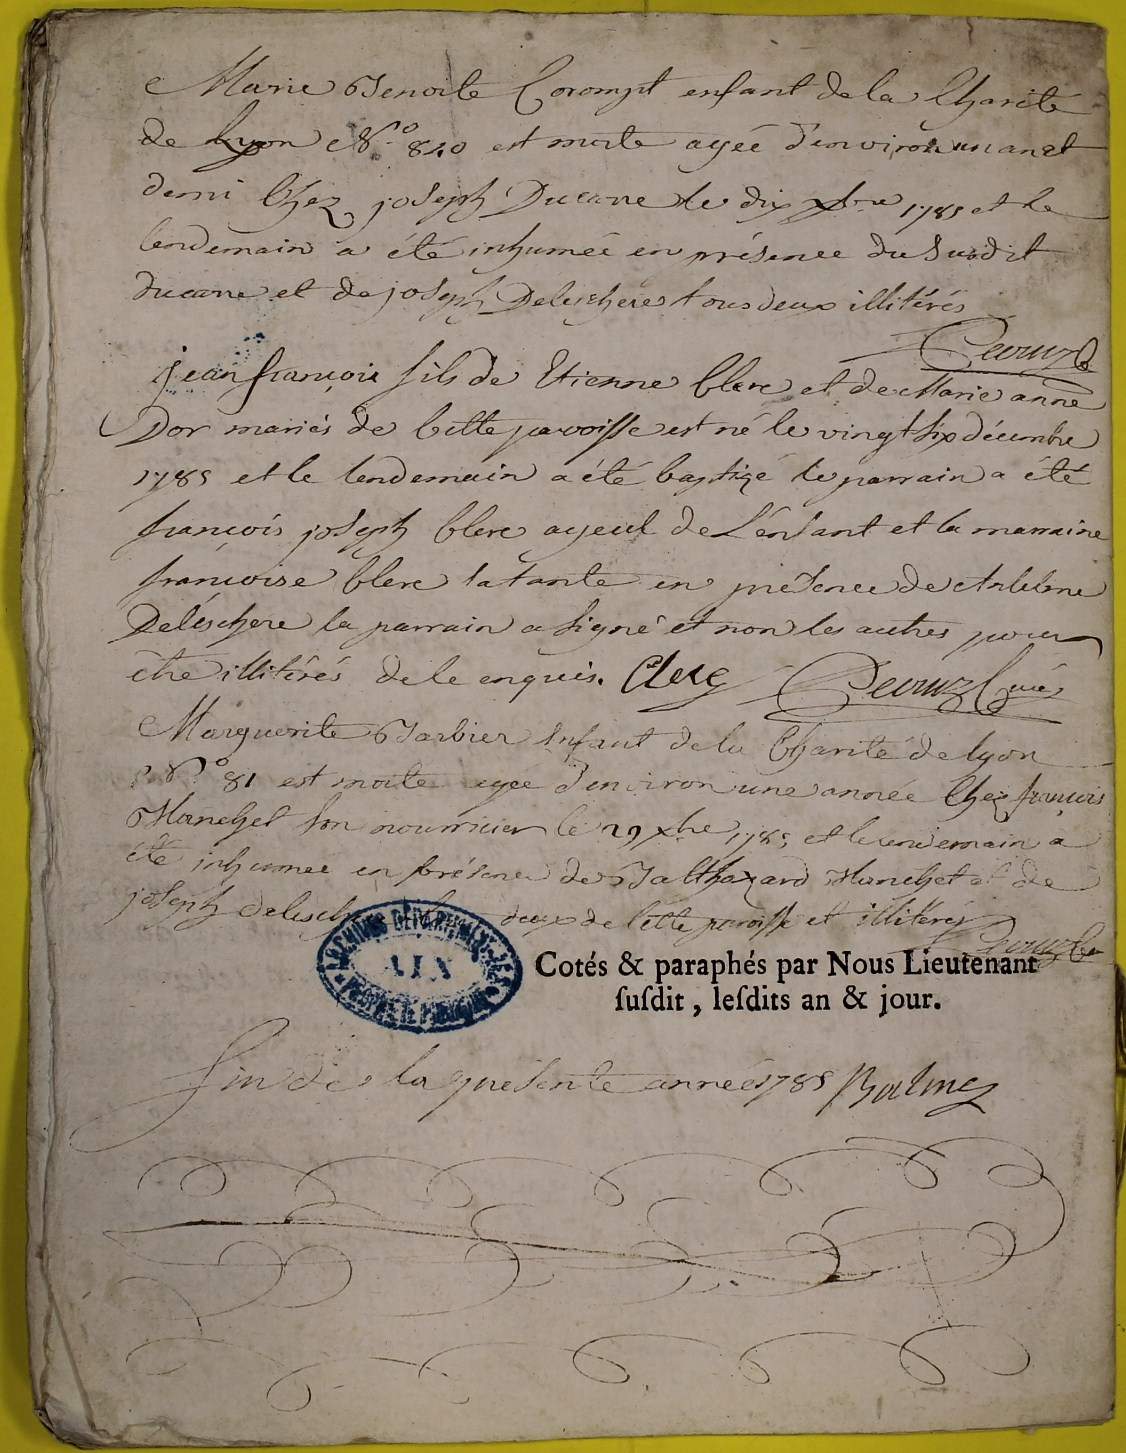 Marie Benoite Corompt enfant de la Charité
de Lyon N.º 840 est morte agée d'environ un an et
demi Chez joseph Ducarre le dix xbre 1785 et le
lendemain a été inhumée en présence du Susdit
ducarre et de joseph Deleschere tous deux illitérés
jean françois fils de Etienne Clerc et de Marie anne
Dor mariés de Cette paroisse est né le vingt six décembre
1785 et le lendemain a été baptizé le parrain a été
françois joseph Clerc ayeul de L'enfant et la marraine
françoise Clerc sa tante en présence de Anthelme
Deléschere le parrain a signé et non les autres pour
être illitérés de le enquis. Clerc Decruz Curé
Marguerite Barbier Enfant de la Charité de lyon
N.º 81 est morte agée d'environ une année Chez françois
Manchet son nourricier le 29 xbre 1785 et le lendemain a
été inhumée en présence de Balthazard Manchet et de
joseph delesch deux de Cette paroisse et illiterés
ARCHIVES DÉPARTEMENTALES
AIN
Cotés & paraphés par Nous Lieutenant
ſuſdit, leſdits an & jour.
fin de la présente année 1785 Balme